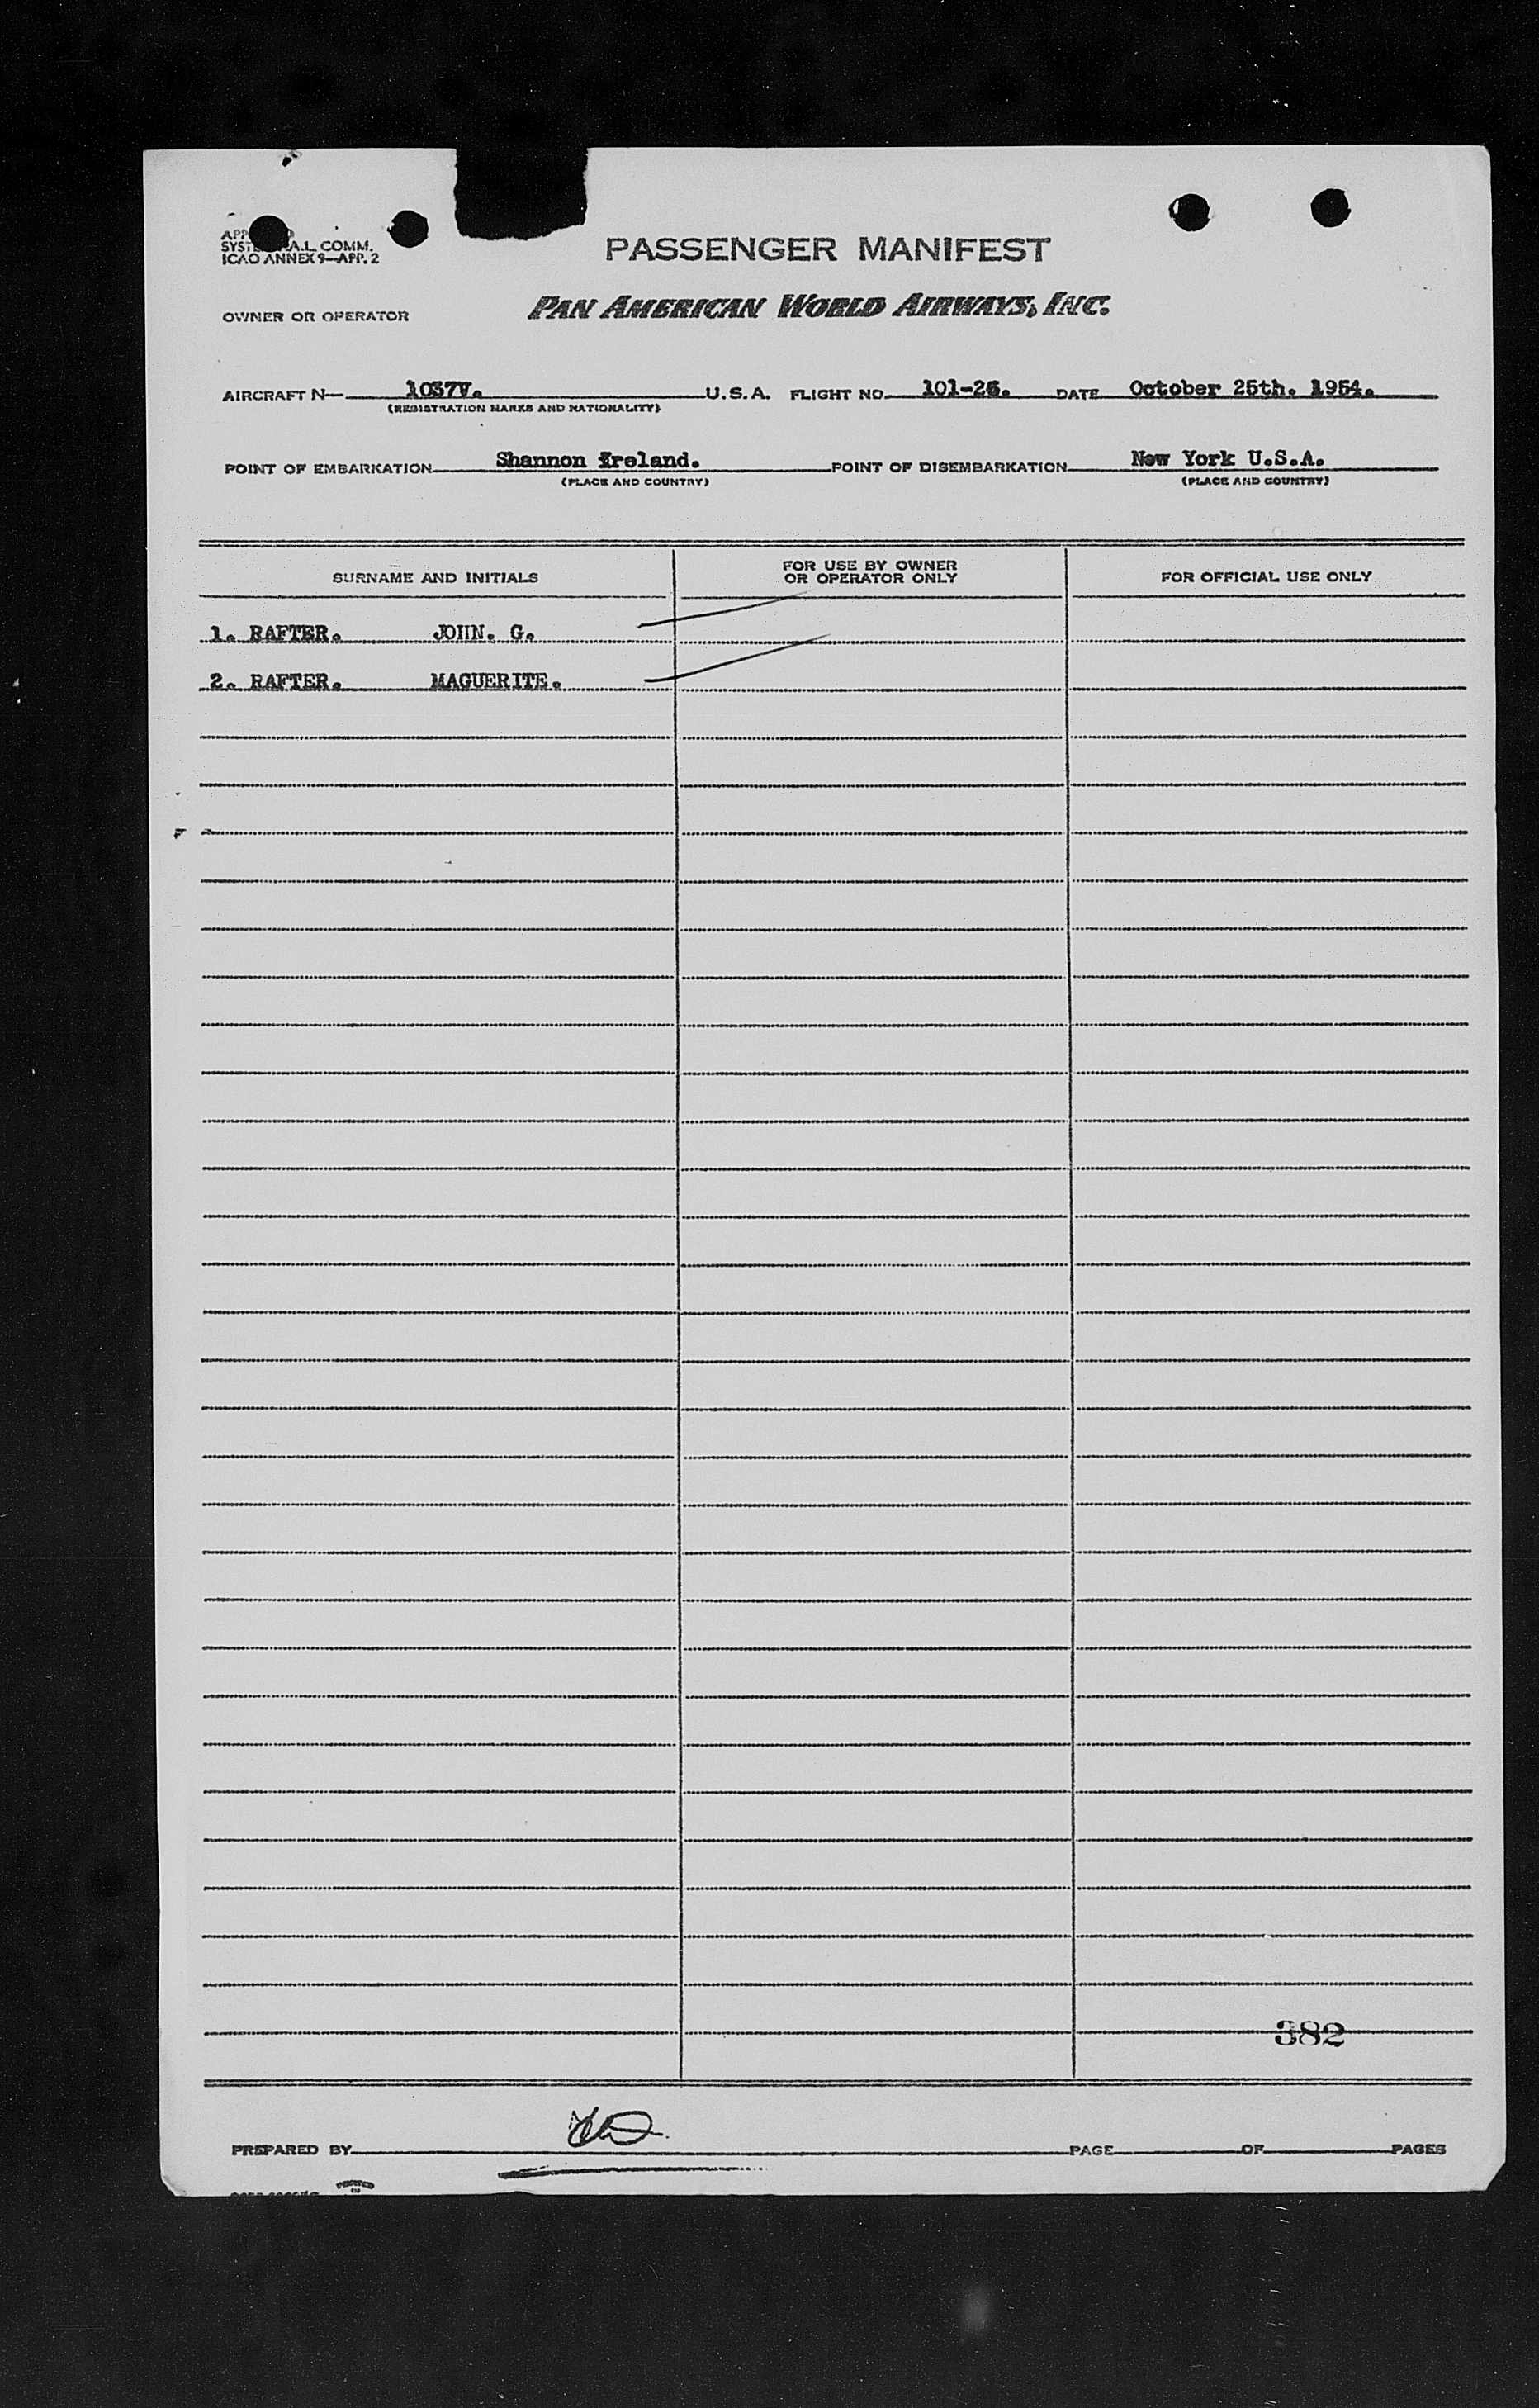 SYST A.L. COMM.
ICAO ANNEX 9—APP. 2
PASSENGER MANIFEST
OWNER OR OPERATOR PAN AMERICAN WORLD AIRWAYS, INC.
AIRCRAFT N— 1037V. U.S.A. FLIGHT NO. 101-25. DATE October 25th. 1954.
(REGISTRATION MARKS AND NATIONALITY)
POINT OF EMBARKATION Shannon Ireland. POINT OF DISEMBARKATION New York U.S.A.
(PLACE AND COUNTRY) (PLACE AND COUNTRY)
SURNAME AND INITIALS FOR USE BY OWNER OR OPERATOR ONLY FOR OFFICIAL USE ONLY
1. RAFTER. JOHN. G.
2. RAFTER. MAGUERITE.
382
PREPARED BY PAGE OF PAGES